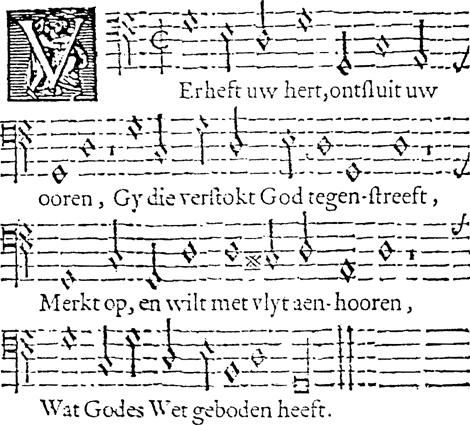 VErheft uw hert, ontsluit uw
ooren, Gy die verstokt God tegen-streeft,
Merkt op, en wilt met vlyt aen-hooren,
Wat Godes Wet geboden heeft.